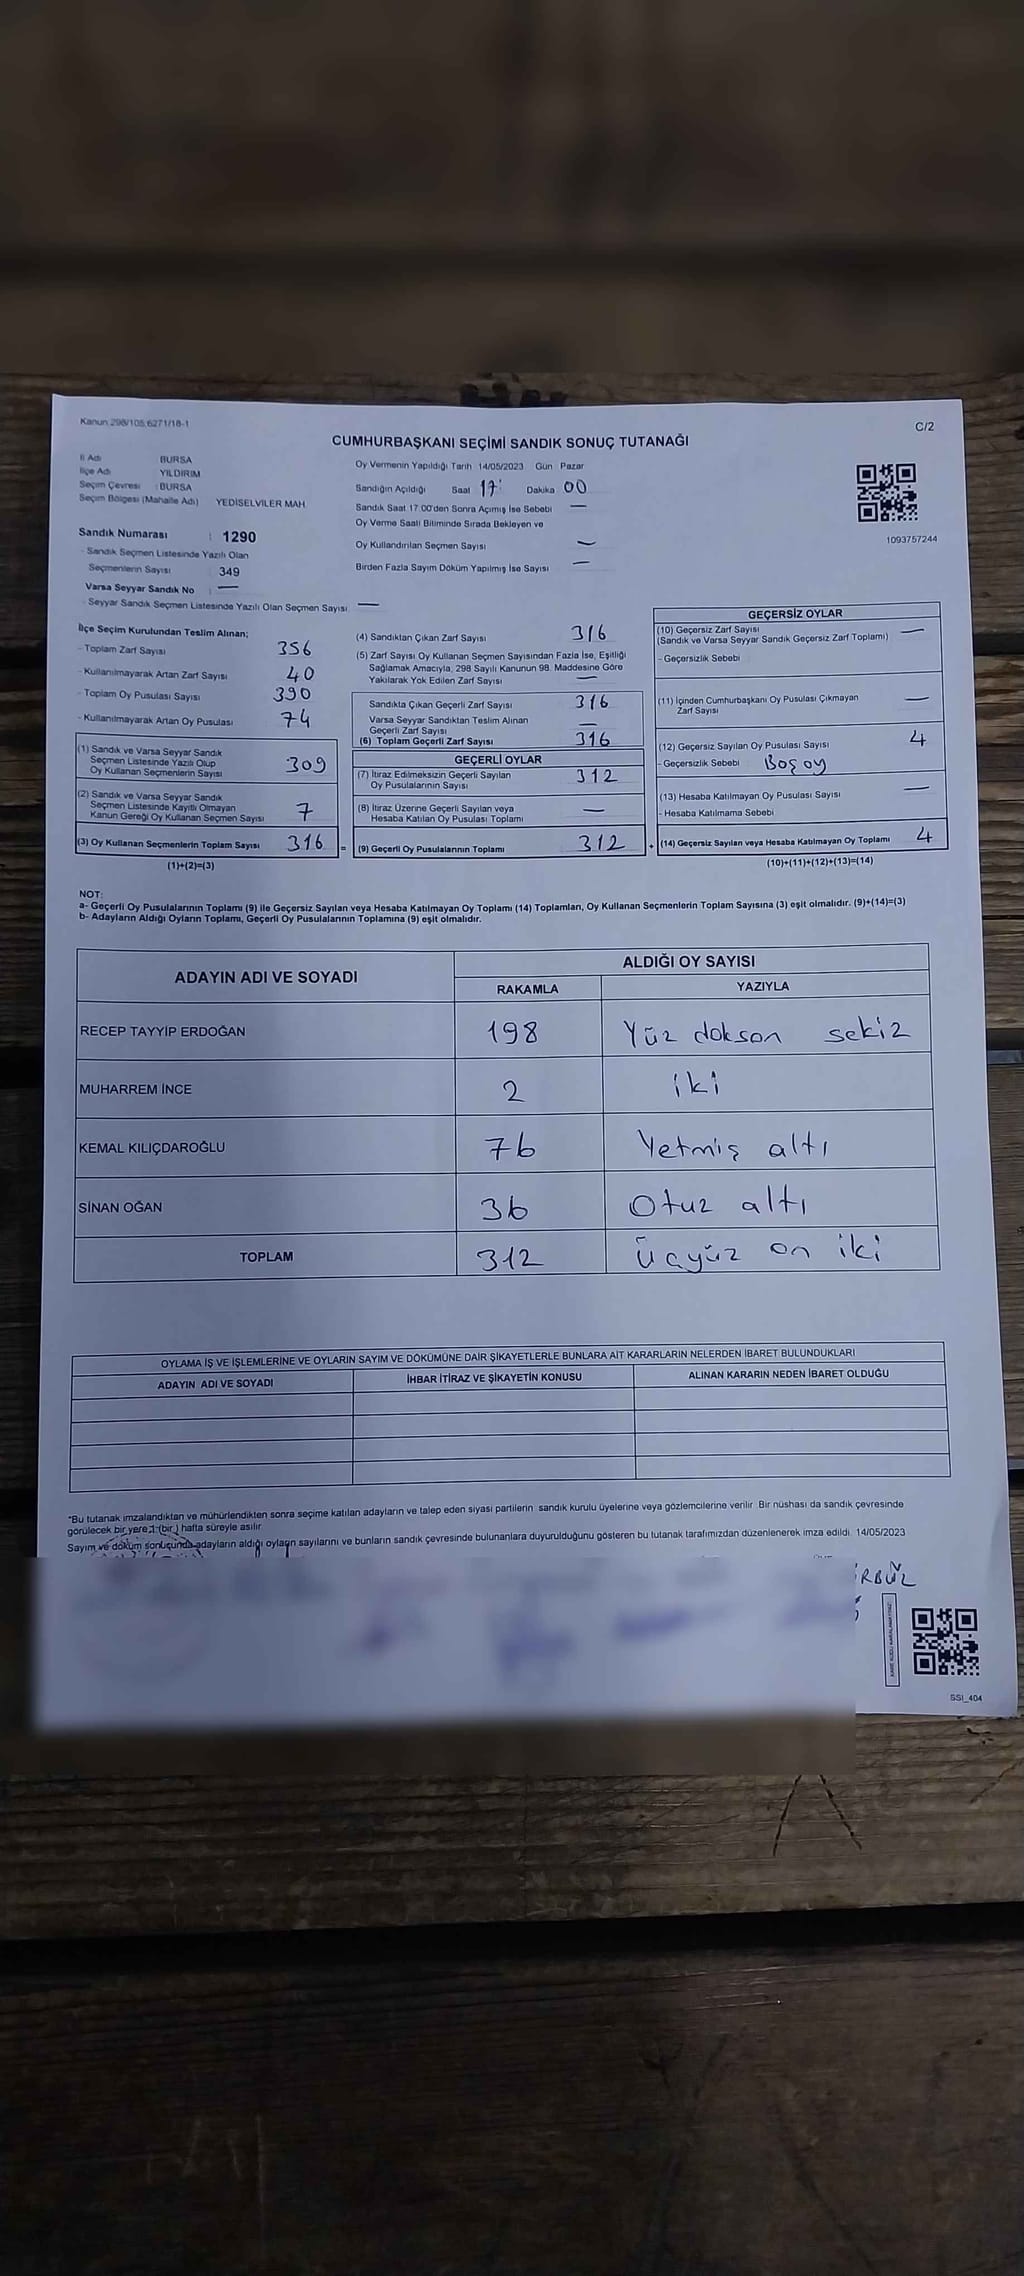 Kanun 298/105,6271/18-1
C/2
CUMHURBAŞKANI SEÇİMİ SANDIK SONUÇ TUTANAĞI
İl Adı : BURSA
İlçe Adı YILDIRIM
Seçim Çevresi : BURSA
Seçim Bölgesi (Mahalle Adı) YEDİSELVİLER MAH
Sandık Numarası : 1290
- Sandık Seçmen Listesinde Yazılı Olan
Seçmenlerin Sayısı : 349
Varsa Seyyar Sandık No —
- Seyyar Sandık Seçmen Listesinde Yazılı Olan Seçmen Sayısı —
Oy Vermenin Yapıldığı Tarih 14/05/2023 Gün Pazar
Sandığın Açıldığı Saat 17: Dakika 00
Sandık Saat 17:00'den Sonra Açımış İse Sebebi —
Oy Verme Saati Bitiminde Sırada Bekleyen ve
Oy Kullandırılan Seçmen Sayısı —
Birden Fazla Sayım Döküm Yapılmış İse Sayısı —
1093757244
İlçe Seçim Kurulundan Teslim Alınan;
- Toplam Zarf Sayısı 356
- Kullanılmayarak Artan Zarf Sayısı 40
- Toplam Oy Pusulası Sayısı 390
- Kullanılmayarak Artan Oy Pusulası 74
(1) Sandık ve Varsa Seyyar Sandık
Seçmen Listesinde Yazılı Olup
Oy Kullanan Seçmenlerin Sayısı 309
(2) Sandık ve Varsa Seyyar Sandık
Seçmen Listesinde Kayıtlı Olmayan
Kanun Gereği Oy Kullanan Seçmen Sayısı 7
(3) Oy Kullanan Seçmenlerin Toplam Sayısı 316 =
(1)+(2)=(3)
(4) Sandıktan Çıkan Zarf Sayısı 316
(5) Zarf Sayısı Oy Kullanan Seçmen Sayısından Fazla İse, Eşitliği
Sağlamak Amacıyla, 298 Sayılı Kanunun 98. Maddesine Göre
Yakılarak Yok Edilen Zarf Sayısı —
Sandıkta Çıkan Geçerli Zarf Sayısı 316
Varsa Seyyar Sandıktan Teslim Alınan
Geçerli Zarf Sayısı —
(6) Toplam Geçerli Zarf Sayısı 316
GEÇERLİ OYLAR
(7) İtiraz Edilmeksizin Geçerli Sayılan
Oy Pusulalarının Sayısı 312
(8) İtiraz Üzerine Geçerli Sayılan veya
Hesaba Katılan Oy Pusulası Toplamı —
(9) Geçerli Oy Pusulalarının Toplamı 312 +
GEÇERSİZ OYLAR
(10) Geçersiz Zarf Sayısı —
(Sandık ve Varsa Seyyar Sandık Geçersiz Zarf Toplamı)
- Geçersizlik Sebebi
(11) İçinden Cumhurbaşkanı Oy Pusulası Çıkmayan —
Zarf Sayısı
(12) Geçersiz Sayılan Oy Pusulası Sayısı 4
- Geçersizlik Sebebi Boş oy
(13) Hesaba Katılmayan Oy Pusulası Sayısı —
- Hesaba Katılmama Sebebi
(14) Geçersiz Sayılan veya Hesaba Katılmayan Oy Toplamı 4
(10)+(11)+(12)+(13)=(14)
NOT:
a- Geçerli Oy Pusulalarının Toplamı (9) ile Geçersiz Sayılan veya Hesaba Katılmayan Oy Toplamı (14) Toplamları, Oy Kullanan Seçmenlerin Toplam Sayısına (3) eşit olmalıdır. (9)+(14)=(3)
b- Adayların Aldığı Oyların Toplamı, Geçerli Oy Pusulalarının Toplamına (9) eşit olmalıdır.
ADAYIN ADI VE SOYADI ALDIĞI OY SAYISI
RAKAMLA YAZIYLA
RECEP TAYYİP ERDOĞAN 198 Yüz dokson sekiz
MUHARREM İNCE 2 iki
KEMAL KILIÇDAROĞLU 76 Yetmiş altı
SİNAN OĞAN 36 Otuz altı
TOPLAM 312 Üçyüz on iki
OYLAMA İŞ VE İŞLEMLERİNE VE OYLARIN SAYIM VE DÖKÜMÜNE DAİR ŞİKAYETLERLE BUNLARA AİT KARARLARIN NELERDEN İBARET BULUNDUKLARI
ADAYIN ADI VE SOYADI İHBAR İTİRAZ VE ŞİKAYETİN KONUSU ALINAN KARARIN NEDEN İBARET OLDUĞU
*Bu tutanak imzalandıktan ve mühürlendikten sonra seçime katılan adayların ve talep eden siyasi partilerin sandık kurulu üyelerine veya gözlemcilerine verilir. Bir nüshası da sandık çevresinde
görülecek bir yere 1 (bir) hafta süreyle asılır
Sayım ve döküm sonucunda adayların aldığı oyların sayılarını ve bunların sandık çevresinde bulunanlara duyurulduğunu gösteren bu tutanak tarafımızdan düzenlenerek imza edildi. 14/05/2023
SSI_404